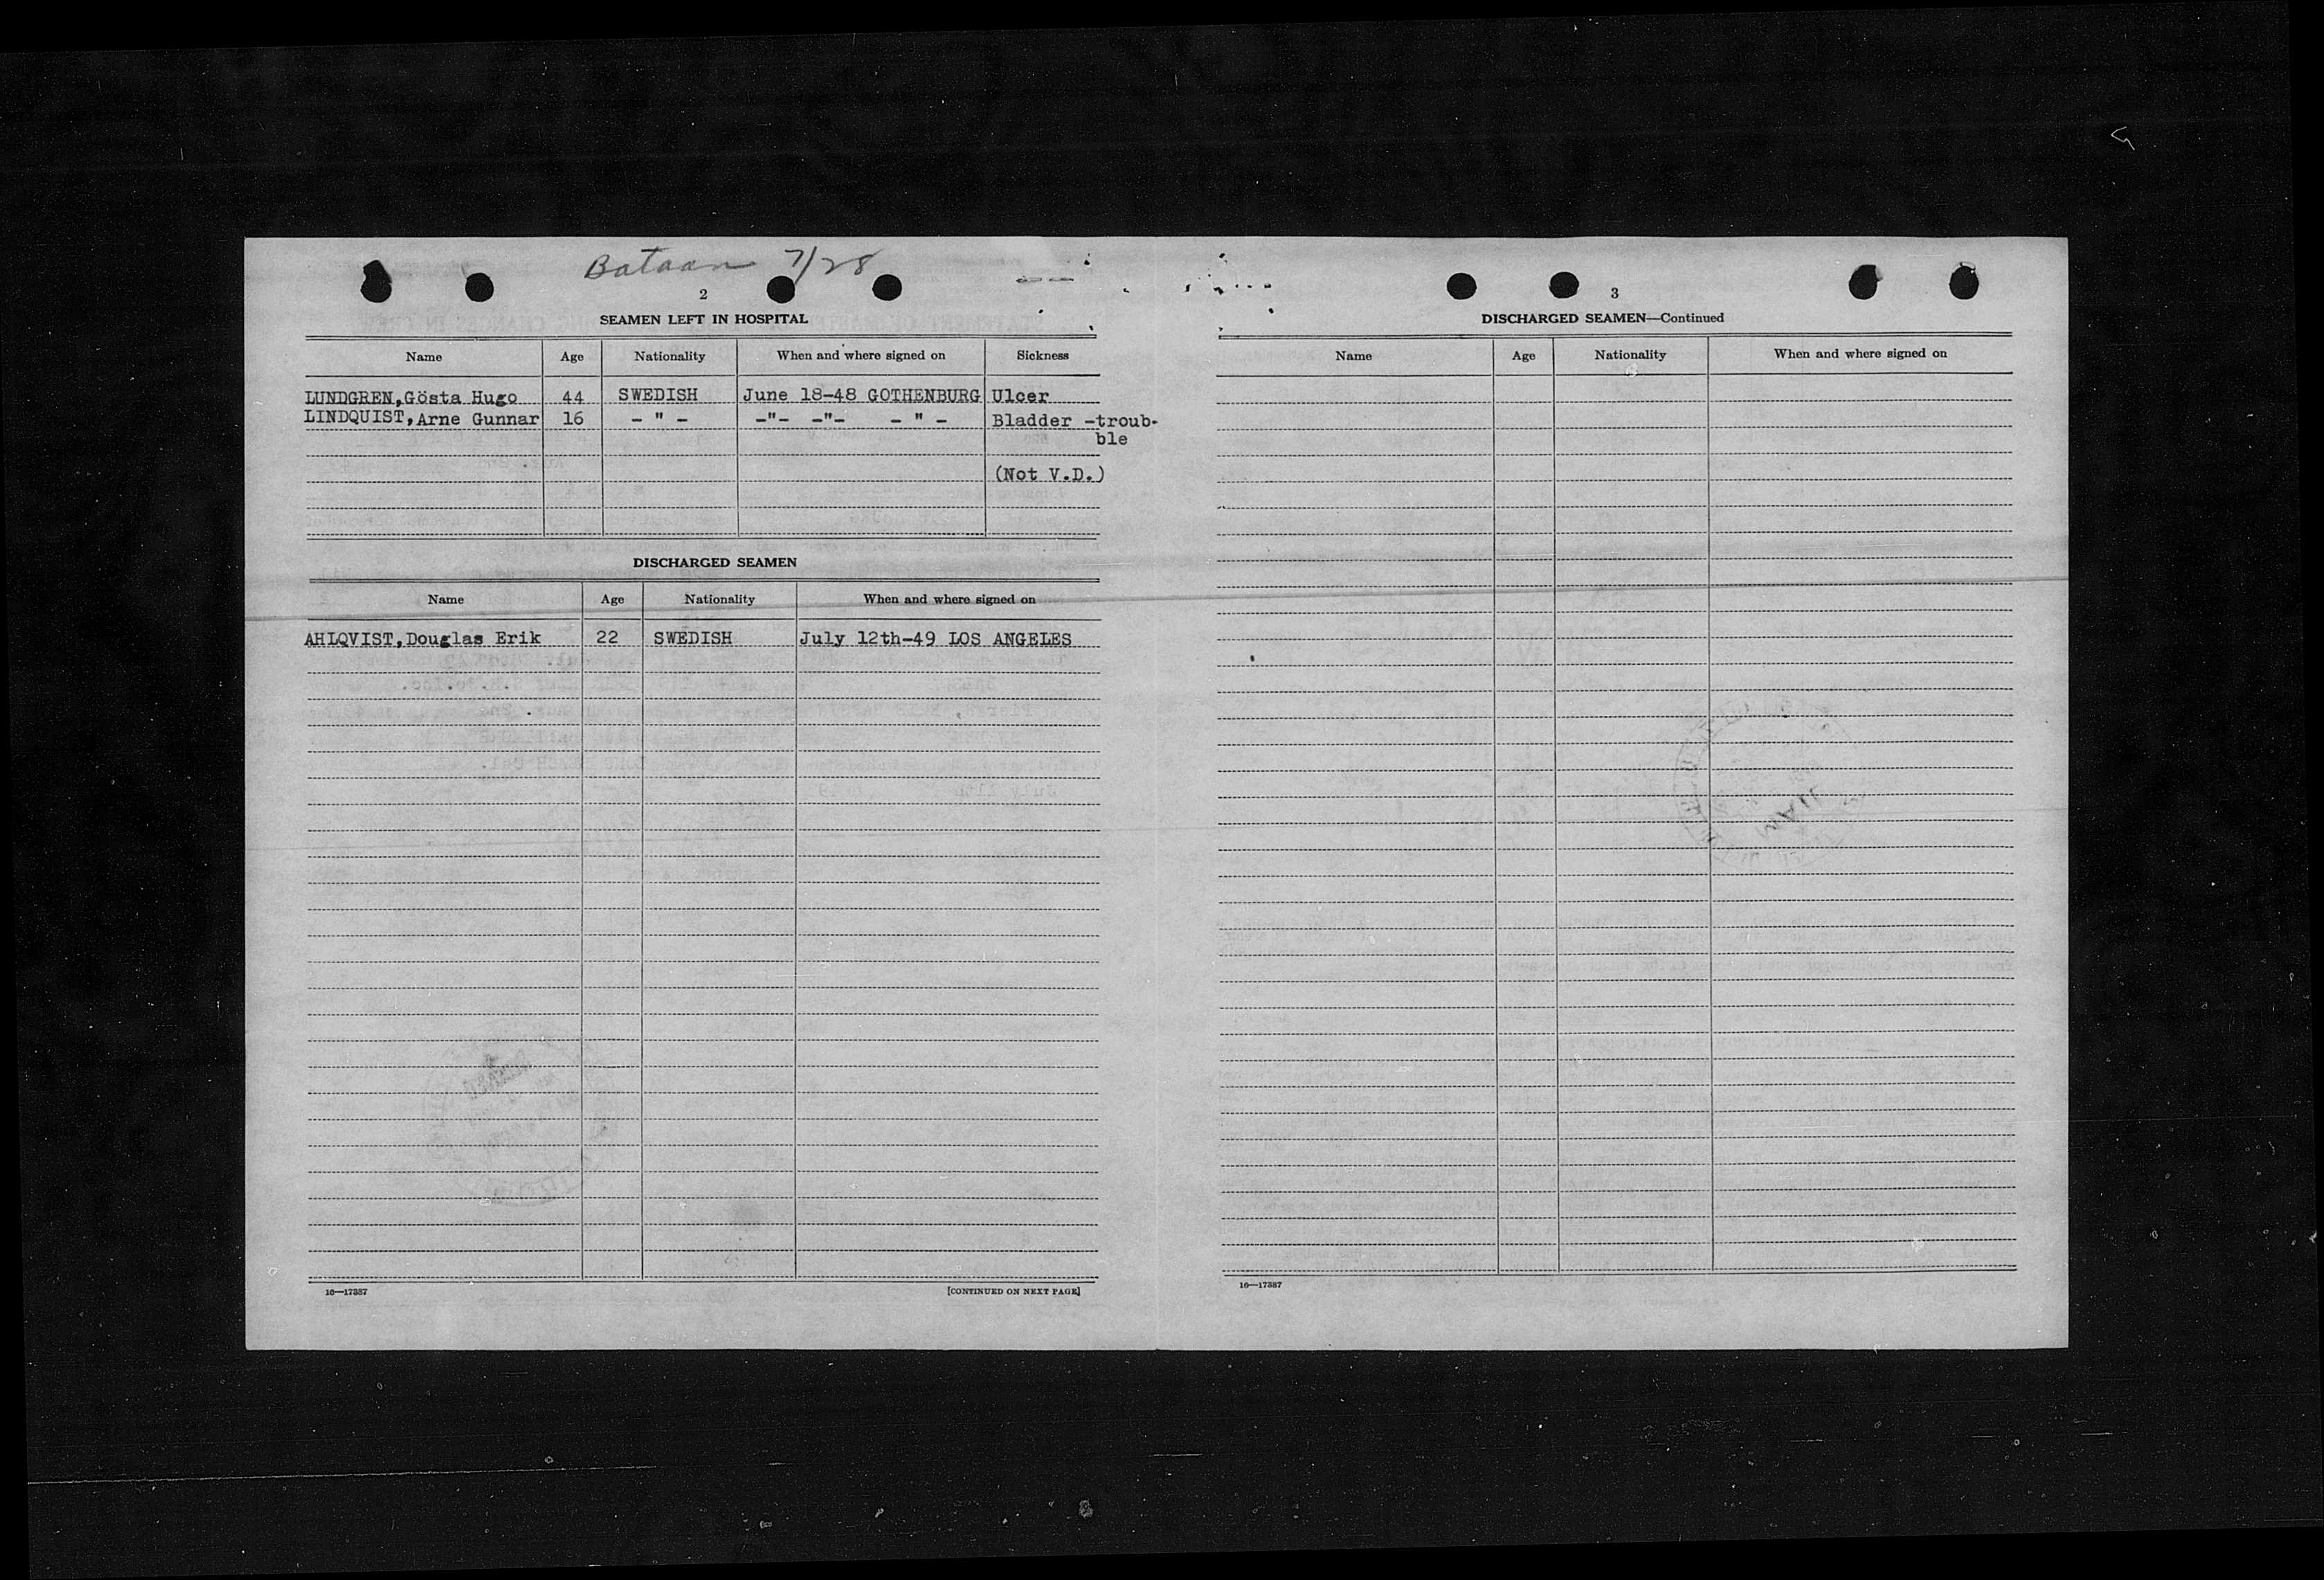 Bataan 7/28
2
SEAMEN LEFT IN HOSPITAL
Name Age Nationality When and where signed on Sickness
LUNDGREN,Gösta Hugo 44 SWEDISH June 18-48 GOTHENBURG Ulcer
LINDQUIST,Arne Gunnar 16 - " - -"- -"- - " - Bladder -troub-
ble
(Not V.D.)
DISCHARGED SEAMEN
Name Age Nationality When and where signed on
AHLQVIST,Douglas Erik 22 SWEDISH July 12th-49 LOS ANGELES
16—17387
[CONTINUED ON NEXT PAGE]
3
DISCHARGED SEAMEN—Continued
Name Age Nationality When and where signed on
16—17387